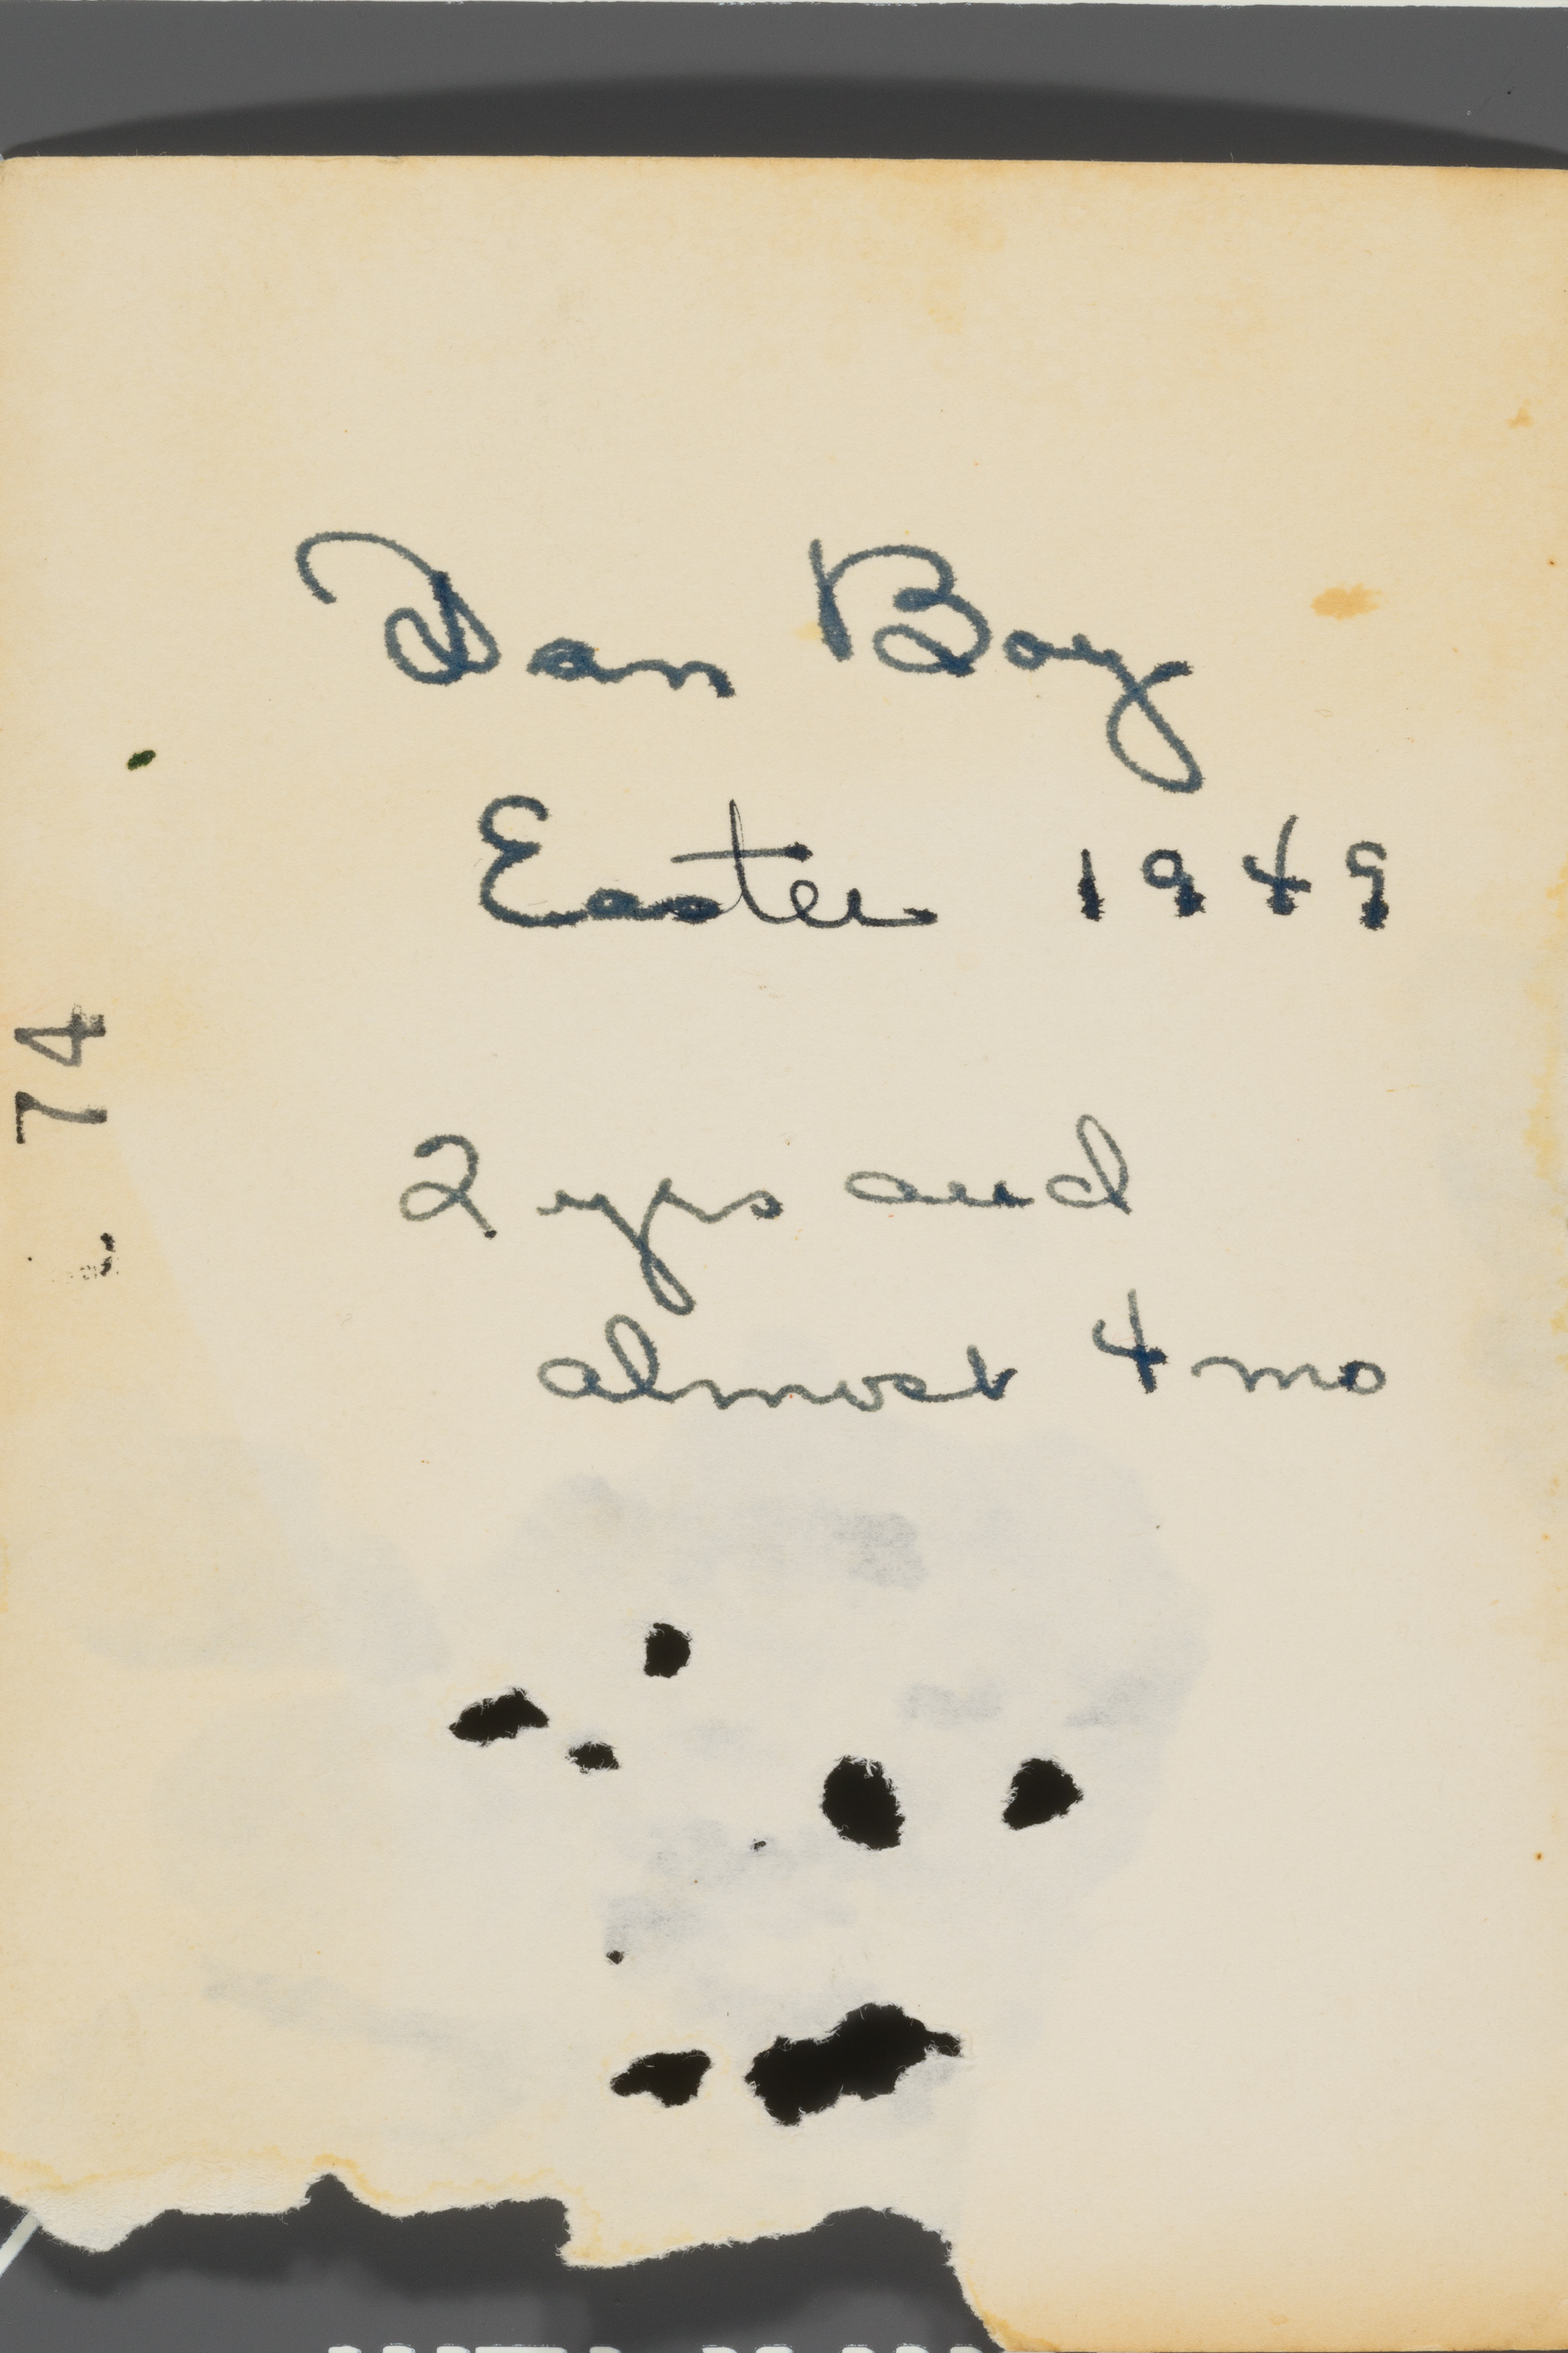 Dan Boy
Easter 1949
2 yrs and
almost 4 mo
74